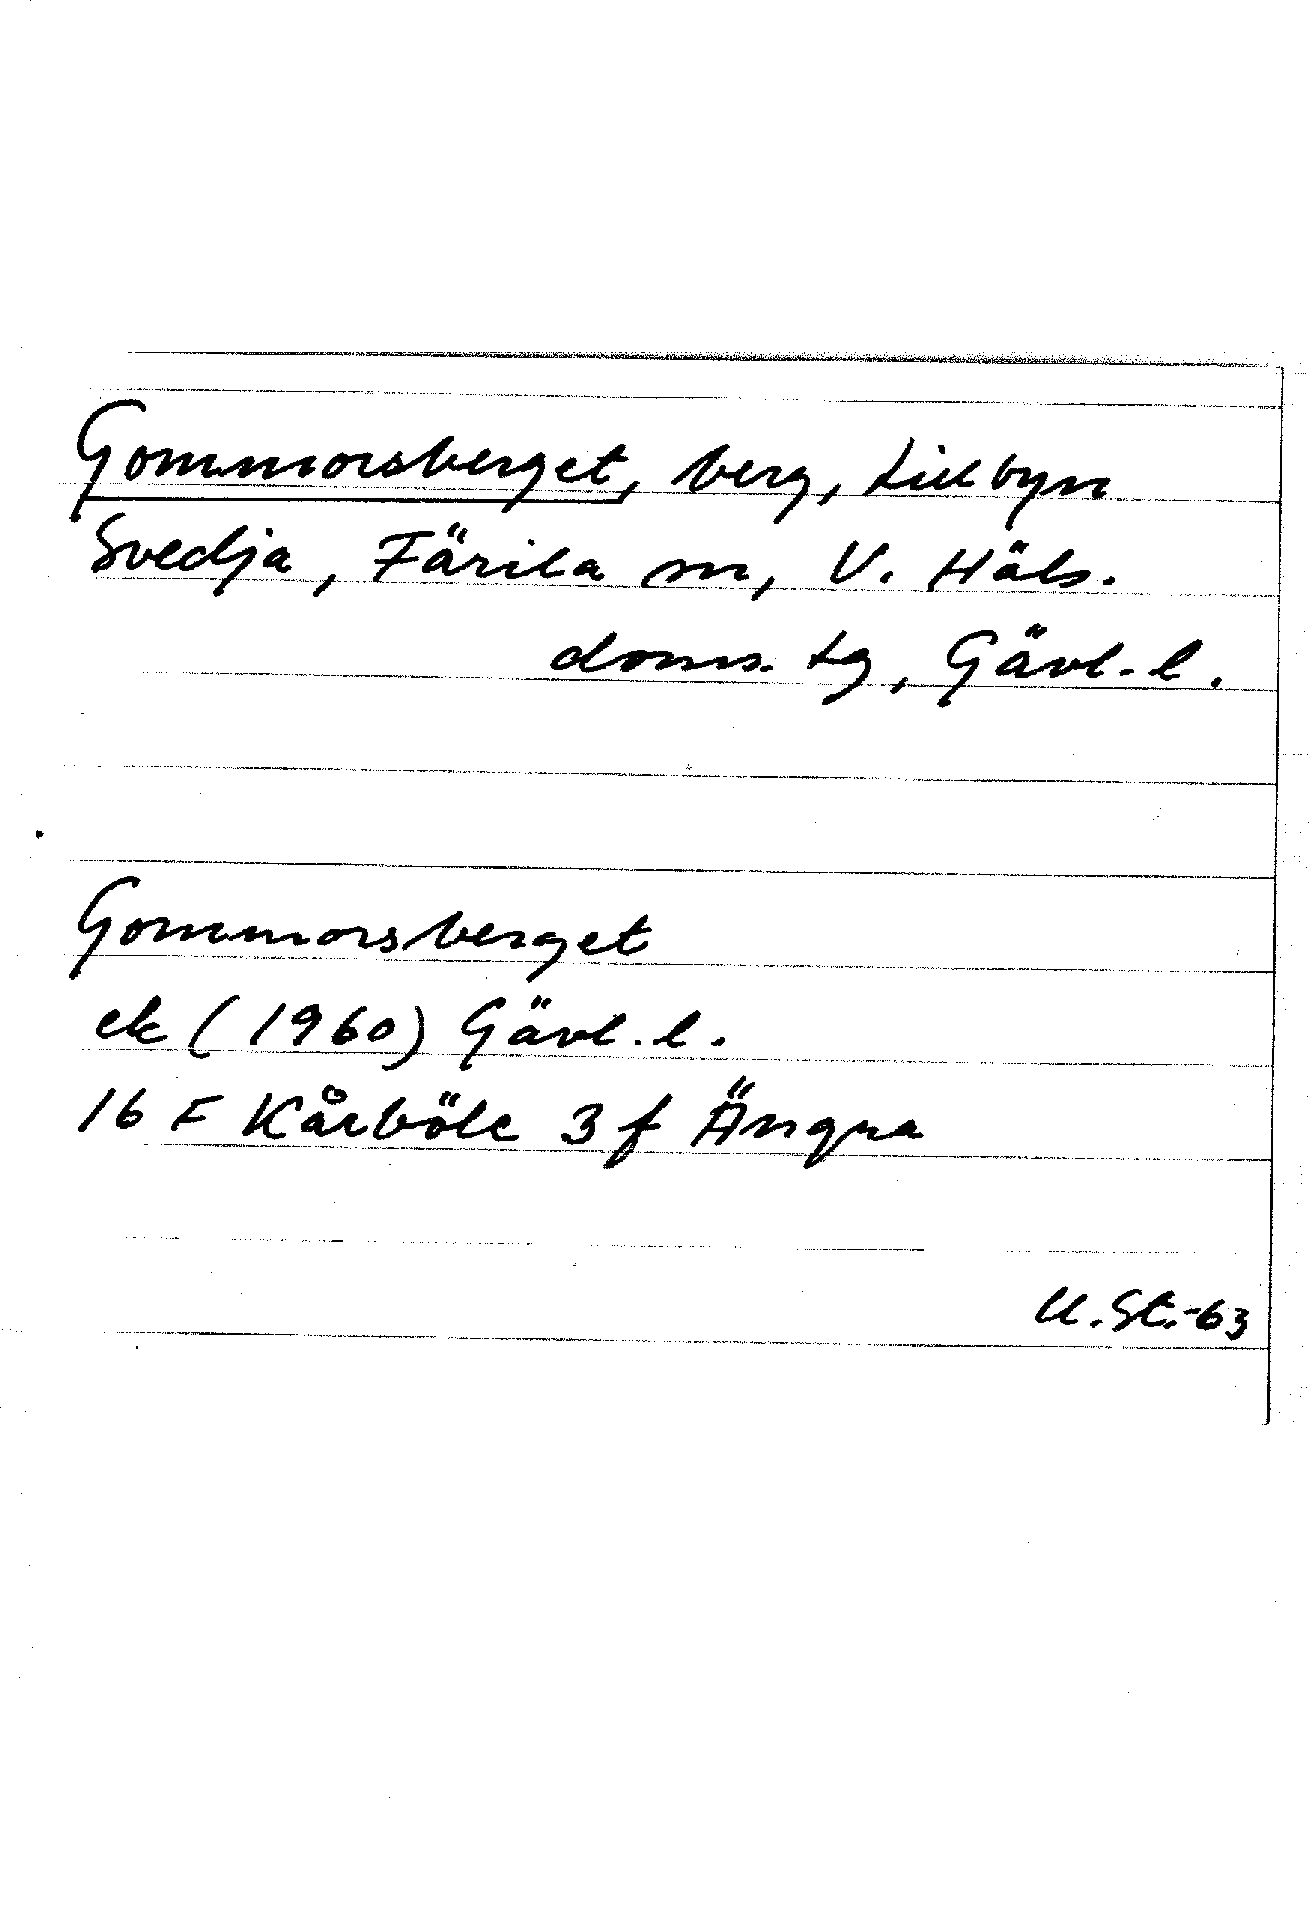 Gommorsberget, berg, Lillbyn
Svedja, Färila sn, V. Häls.
doms. tg, Gävl. l.
Gommorsberget
ek (1960) Gävl. l.
16 F Kårböle 3 f Ängra
U. St. -63